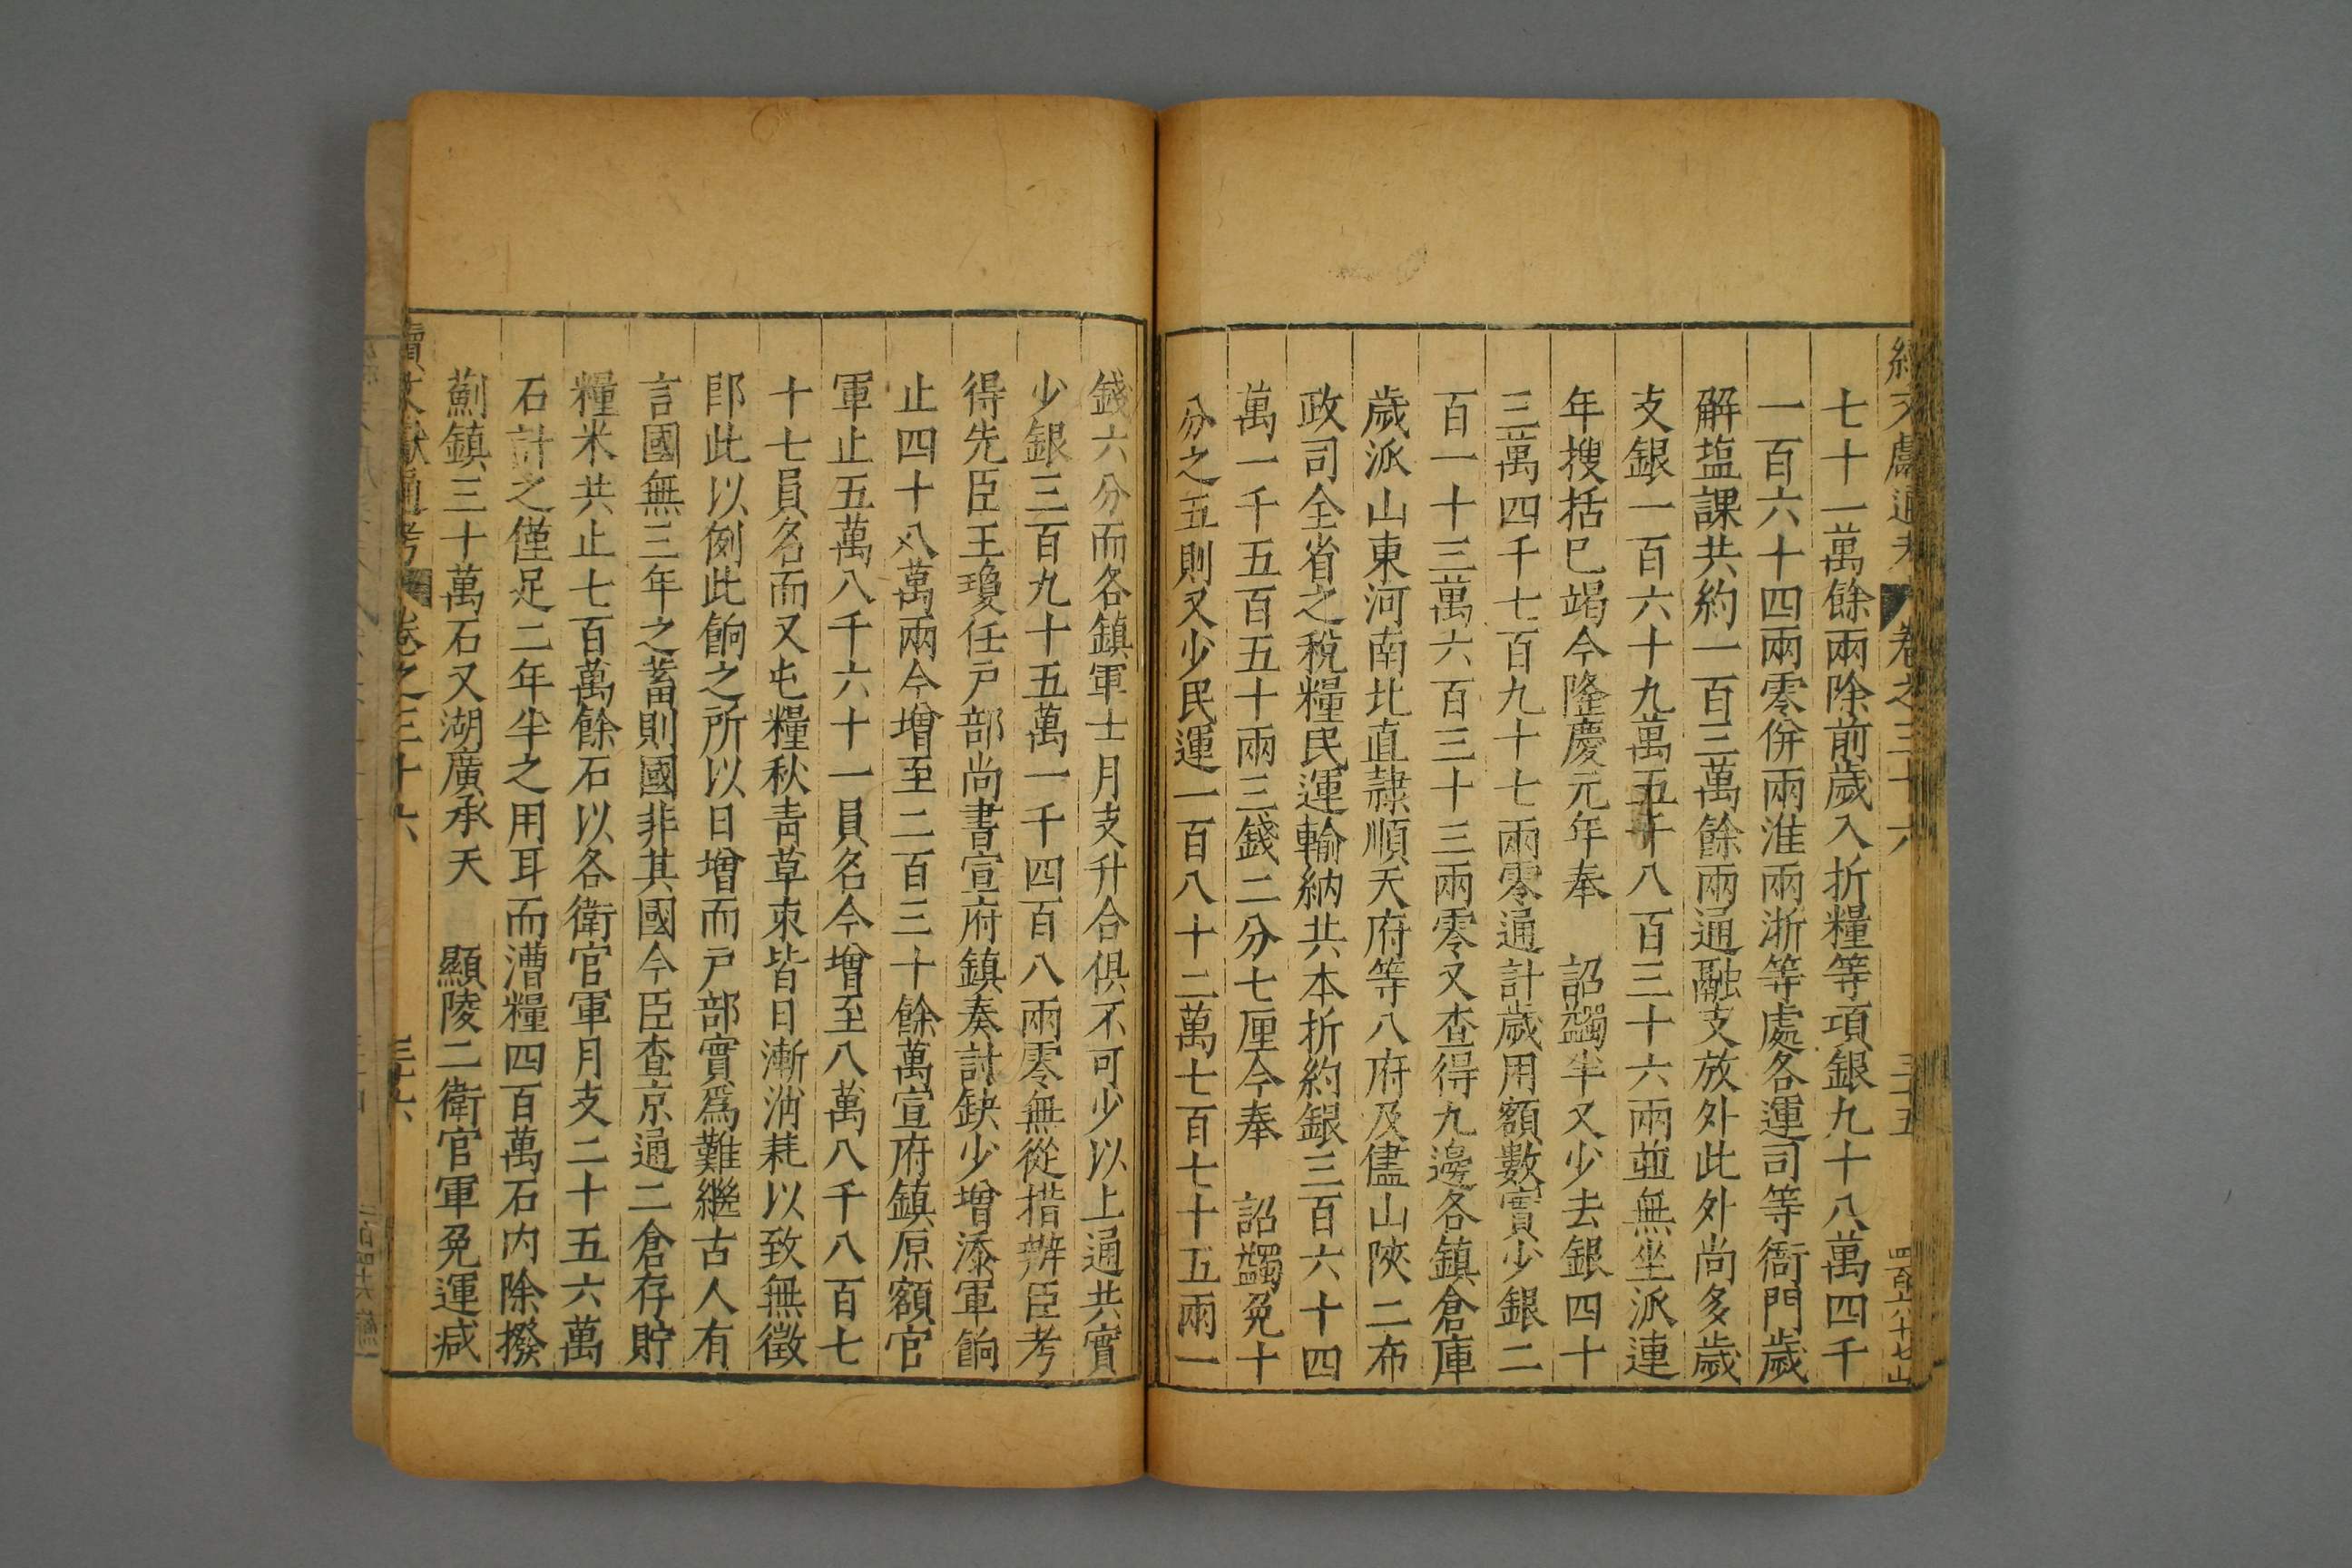 七十一萬餘兩除前歲入折糧等項銀九十八萬四千
一百六十四兩零併兩淮兩浙等處各運司等衙門歲
解塩課共約一百三萬餘兩通融支放外此外尚多歲
支銀一百六十九萬五千八百三十六兩並無坐派連
年搜括已竭今隆慶元年奉 詔蠲半又少去銀四十
三萬四千七百九十七兩零通計歲用額數實少銀二
百一十三萬六百三十三兩零又查得九邊各鎮倉庫
歲派山東河南北直隸順天府等八府及儘山陝二布
政司全省之稅糧民運輸納共本折約銀三百六十四
萬一千五百五十兩三錢二分七厘今奉 詔蠲免十
分之五則又少民運一百八十二萬七百七十五兩一
錢六分而各鎮軍士月支升合俱不可少以上通共實
少銀三百九十五萬一千四百八兩零無從措辦臣考
得先臣王瓊任戶部尚書宣府鎮奏討缺少增添軍餉
止四十八萬兩今增至二百三十餘萬宣府鎮原額官
軍止五萬八千六十一員名今增至八萬八千八百七
十七員名而又屯糧秋青草束皆日漸消耗以致無徵
即此以例此餉之所以日增而戶部實爲難繼古人有
言國無三年之蓄則國非其國今臣查京通二倉存貯
糧米共止七百萬餘石以各衛官軍月支二十五六萬
石計之僅足二年半之用耳而漕糧四百萬石内除撥
薊鎮三十萬石又湖廣承天 顯陵二衛官軍免運減
續文獻通考 卷之三十六 三十六